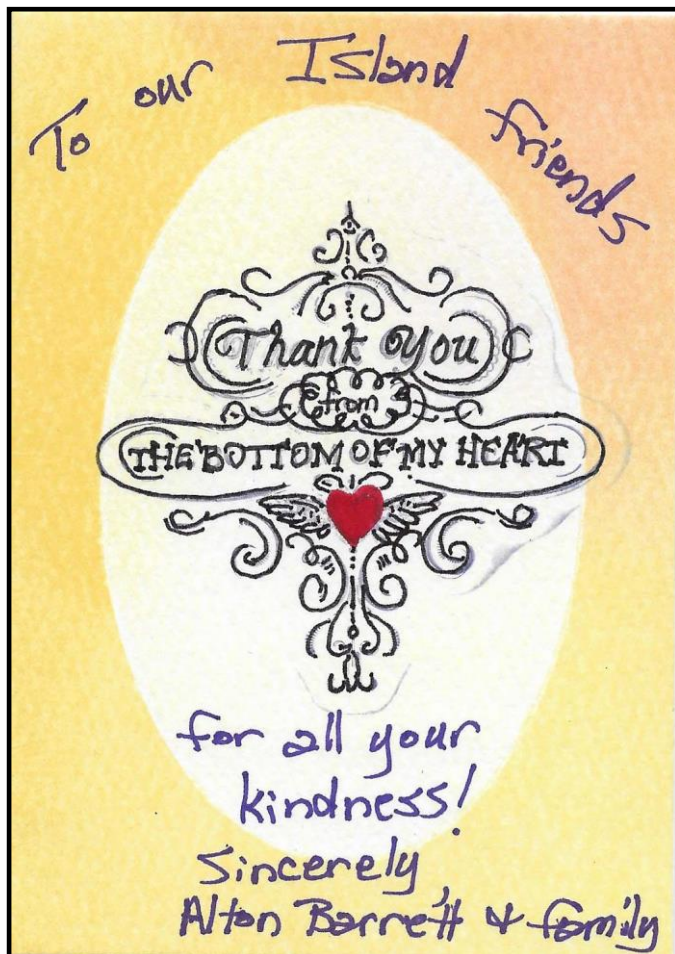 To our Island friends
Thank You
from
THE BOTTOM OF MY HEART
for all your
kindness!
Sincerely,
Alton Barrett & family